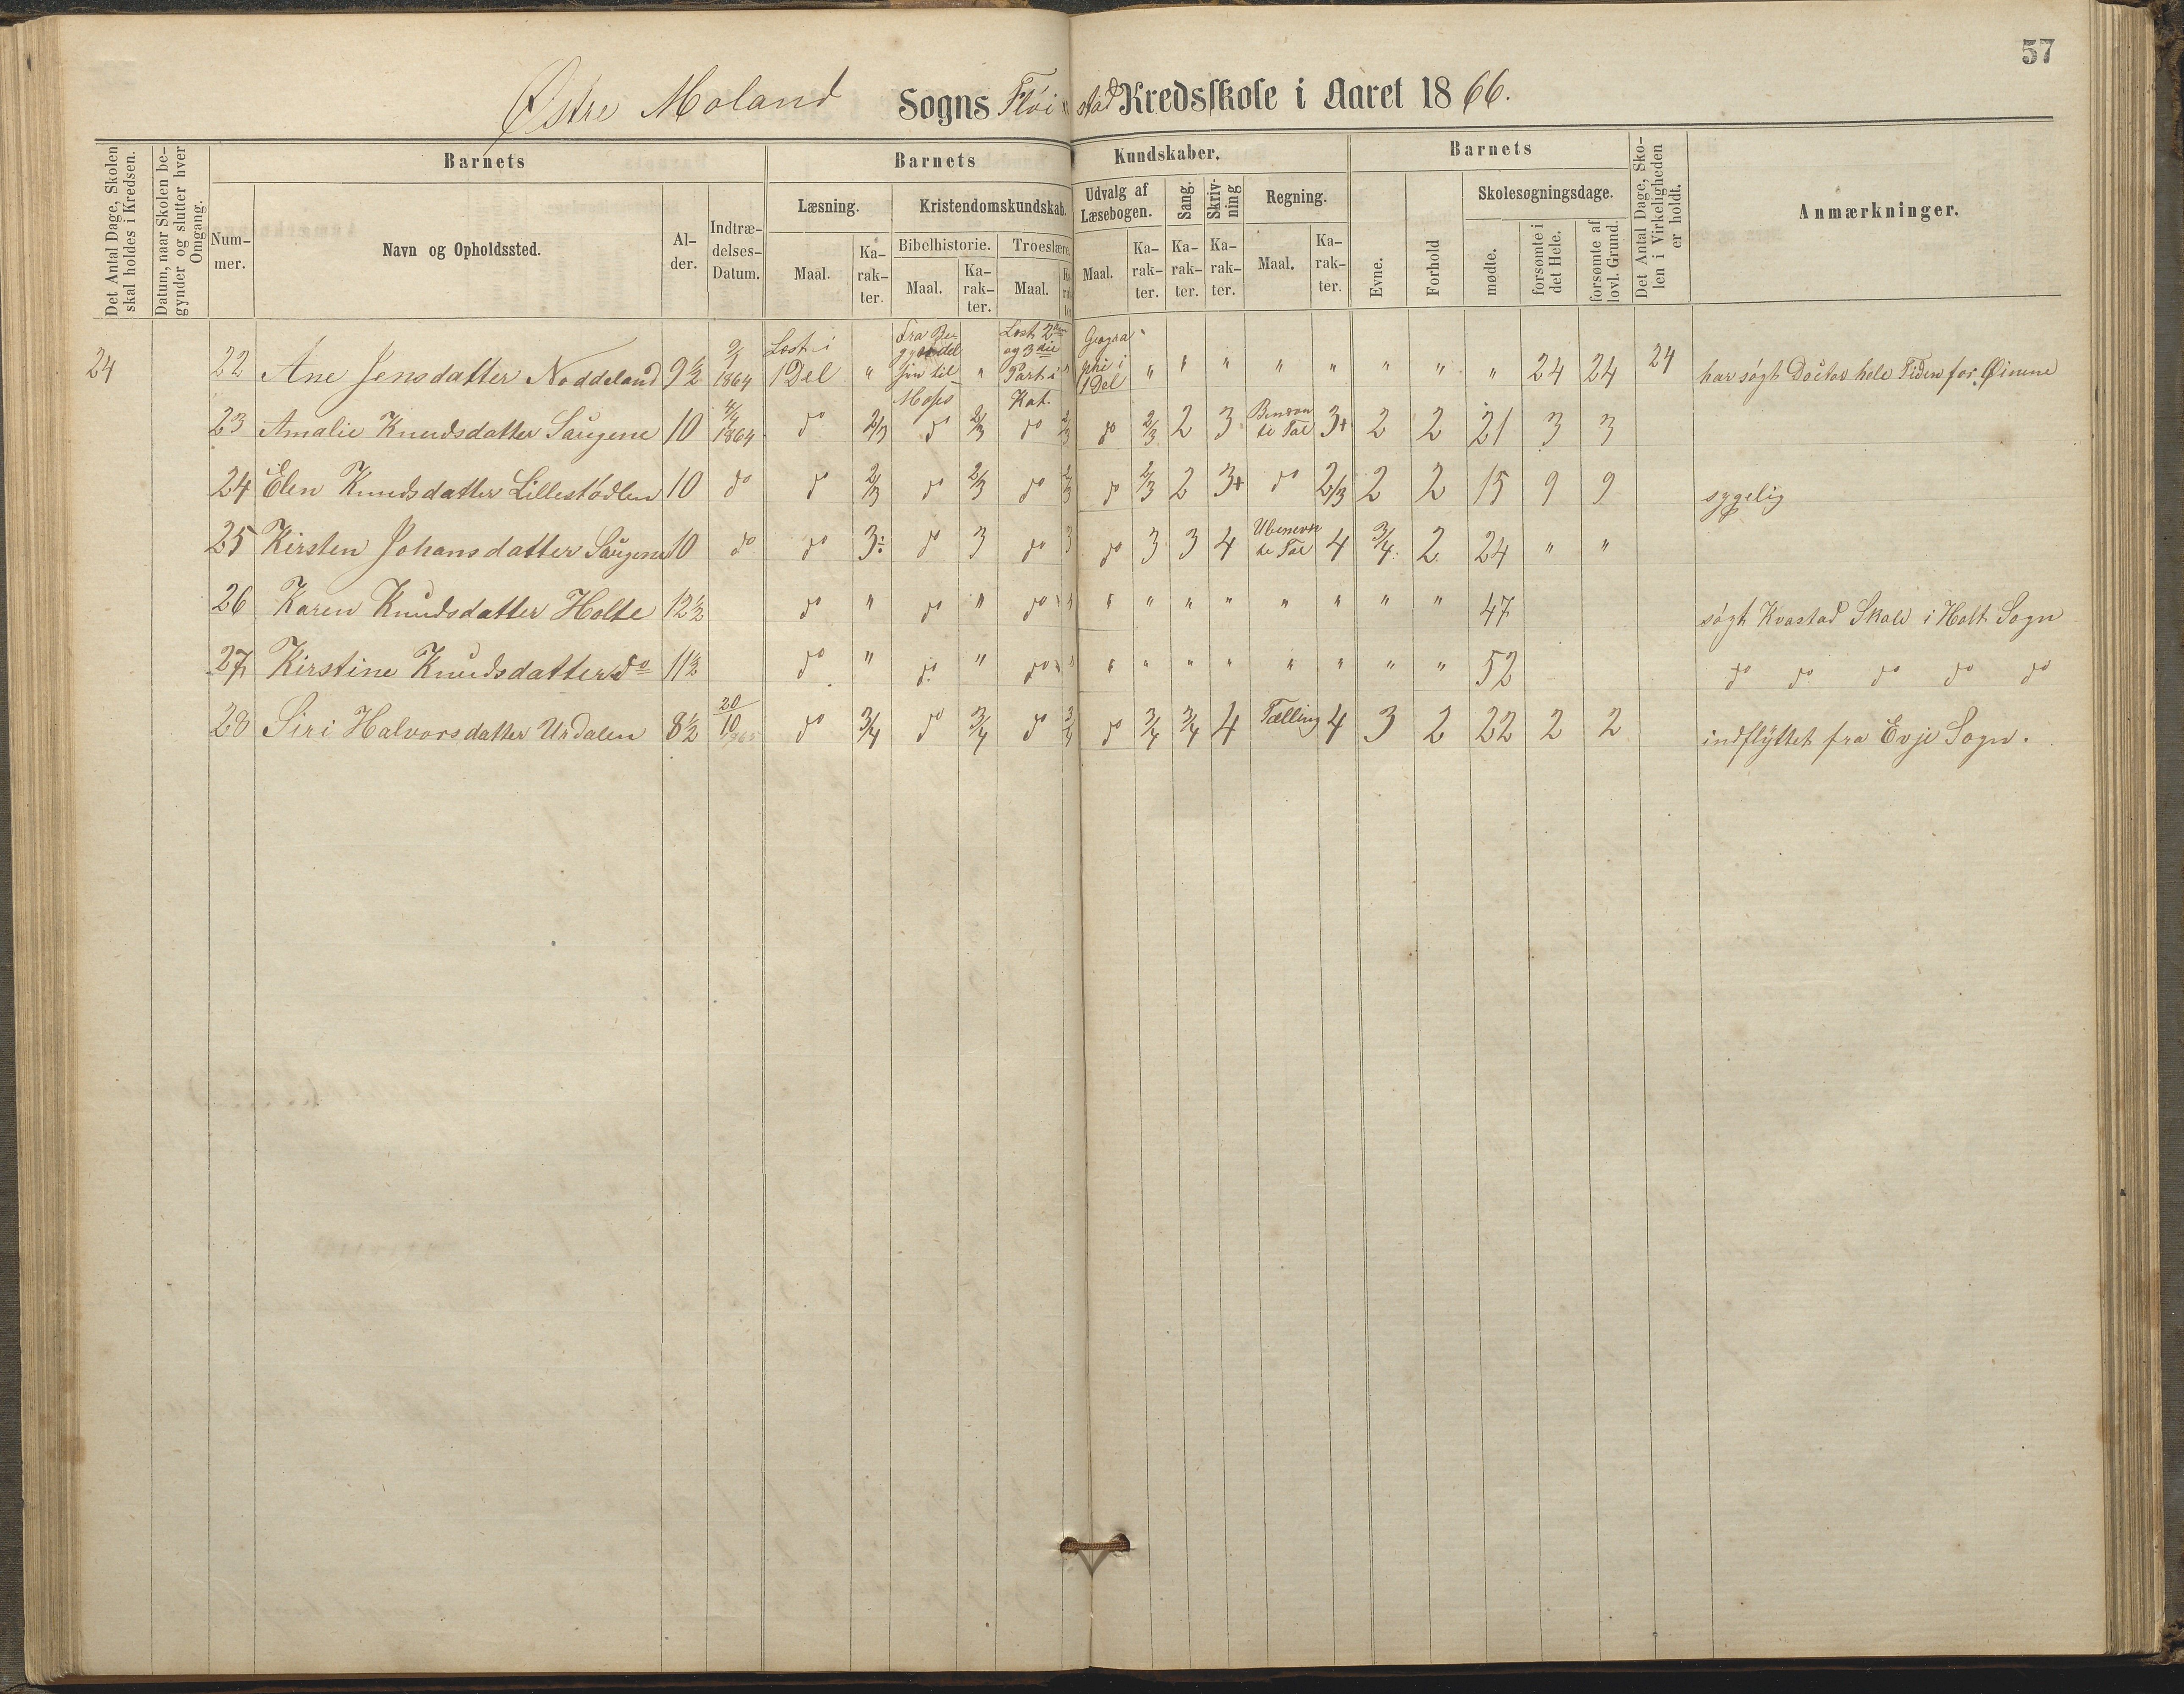 57
Østre Moland Sogns Fløistad Kredsskole i Aaret 1866.
Det Antal Dage, Skolen skal holdes i Kredsen.
Datum, naar Skolen begynder og slutter hver Omgang.
Barnets
Nummer.
Navn og Opholdssted.
Alder.
Indtrædelses-Datum.
Barnets Kundskaber.
Læsning.
Maal.
Karakter.
Kristendomskundskab.
Bibelhistorie.
Maal.
Karakter.
Troeslære.
Maal.
Udvalg af Læsebogen.
Maal.
Karakter.
Sang.
Karakter.
Skrivning
Karakter.
Regning.
Maal.
Karakter.
Barnets
Evne.
Forhold
Skolesøgningsdage.
mødte.
forsømte i det Hele.
forsømte af lovl. Grund.
Det Antal Dage, Skolen i Virkeligheden er holdt.
Anmærkninger.
24 22 Ane Jensdatter Noddeland 9½ 9/1 1864 Læst i 1 Del " " Læst 2den og 3die Part i Kat. " Geographi i 1 Del " " " " " " " " 24 24 24 har søgt Doctor hele Tiden for Øinene
23 Amalie Knudsdatter Saugene 10 1864 do 2/3 do 2/3 do 2/3 do 2/3 2 3 3+ 2 2 21 3 3
24 Elen Knudsdatter Lillestødlen 10 do do 2/3 do 2/3 do 2/3 do 2/3 2 3+ do 2/3 2 2 15 9 9 sygelig
25 Kirsten Johansdatter Saugene 10 do do 3÷ do 3 do 3 do 3 3 4 4 3/4 2 24 " "
26 Karen Knudsdatter Holte 12½ do " do " do " " " " " " " " " 47 søgt Kvastad Skole i Holt Sogn
27 Kirstine Knudsdatter do 11½ do " do " do " " " " " " " " " 52 do do do do do
28 Siri Halvorsdatter Urdalen 8½ 20/10 do 3/4 do 3/4 do 3/4 do 3/4 3/4 4 Tælling 4 3 2 22 2 2 indflyttet fra Evje Sogn.